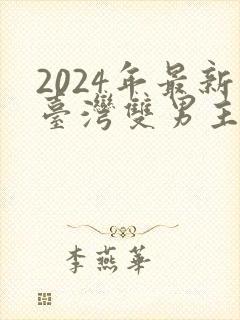 2024年最新
臺灣雙男主
李燕華